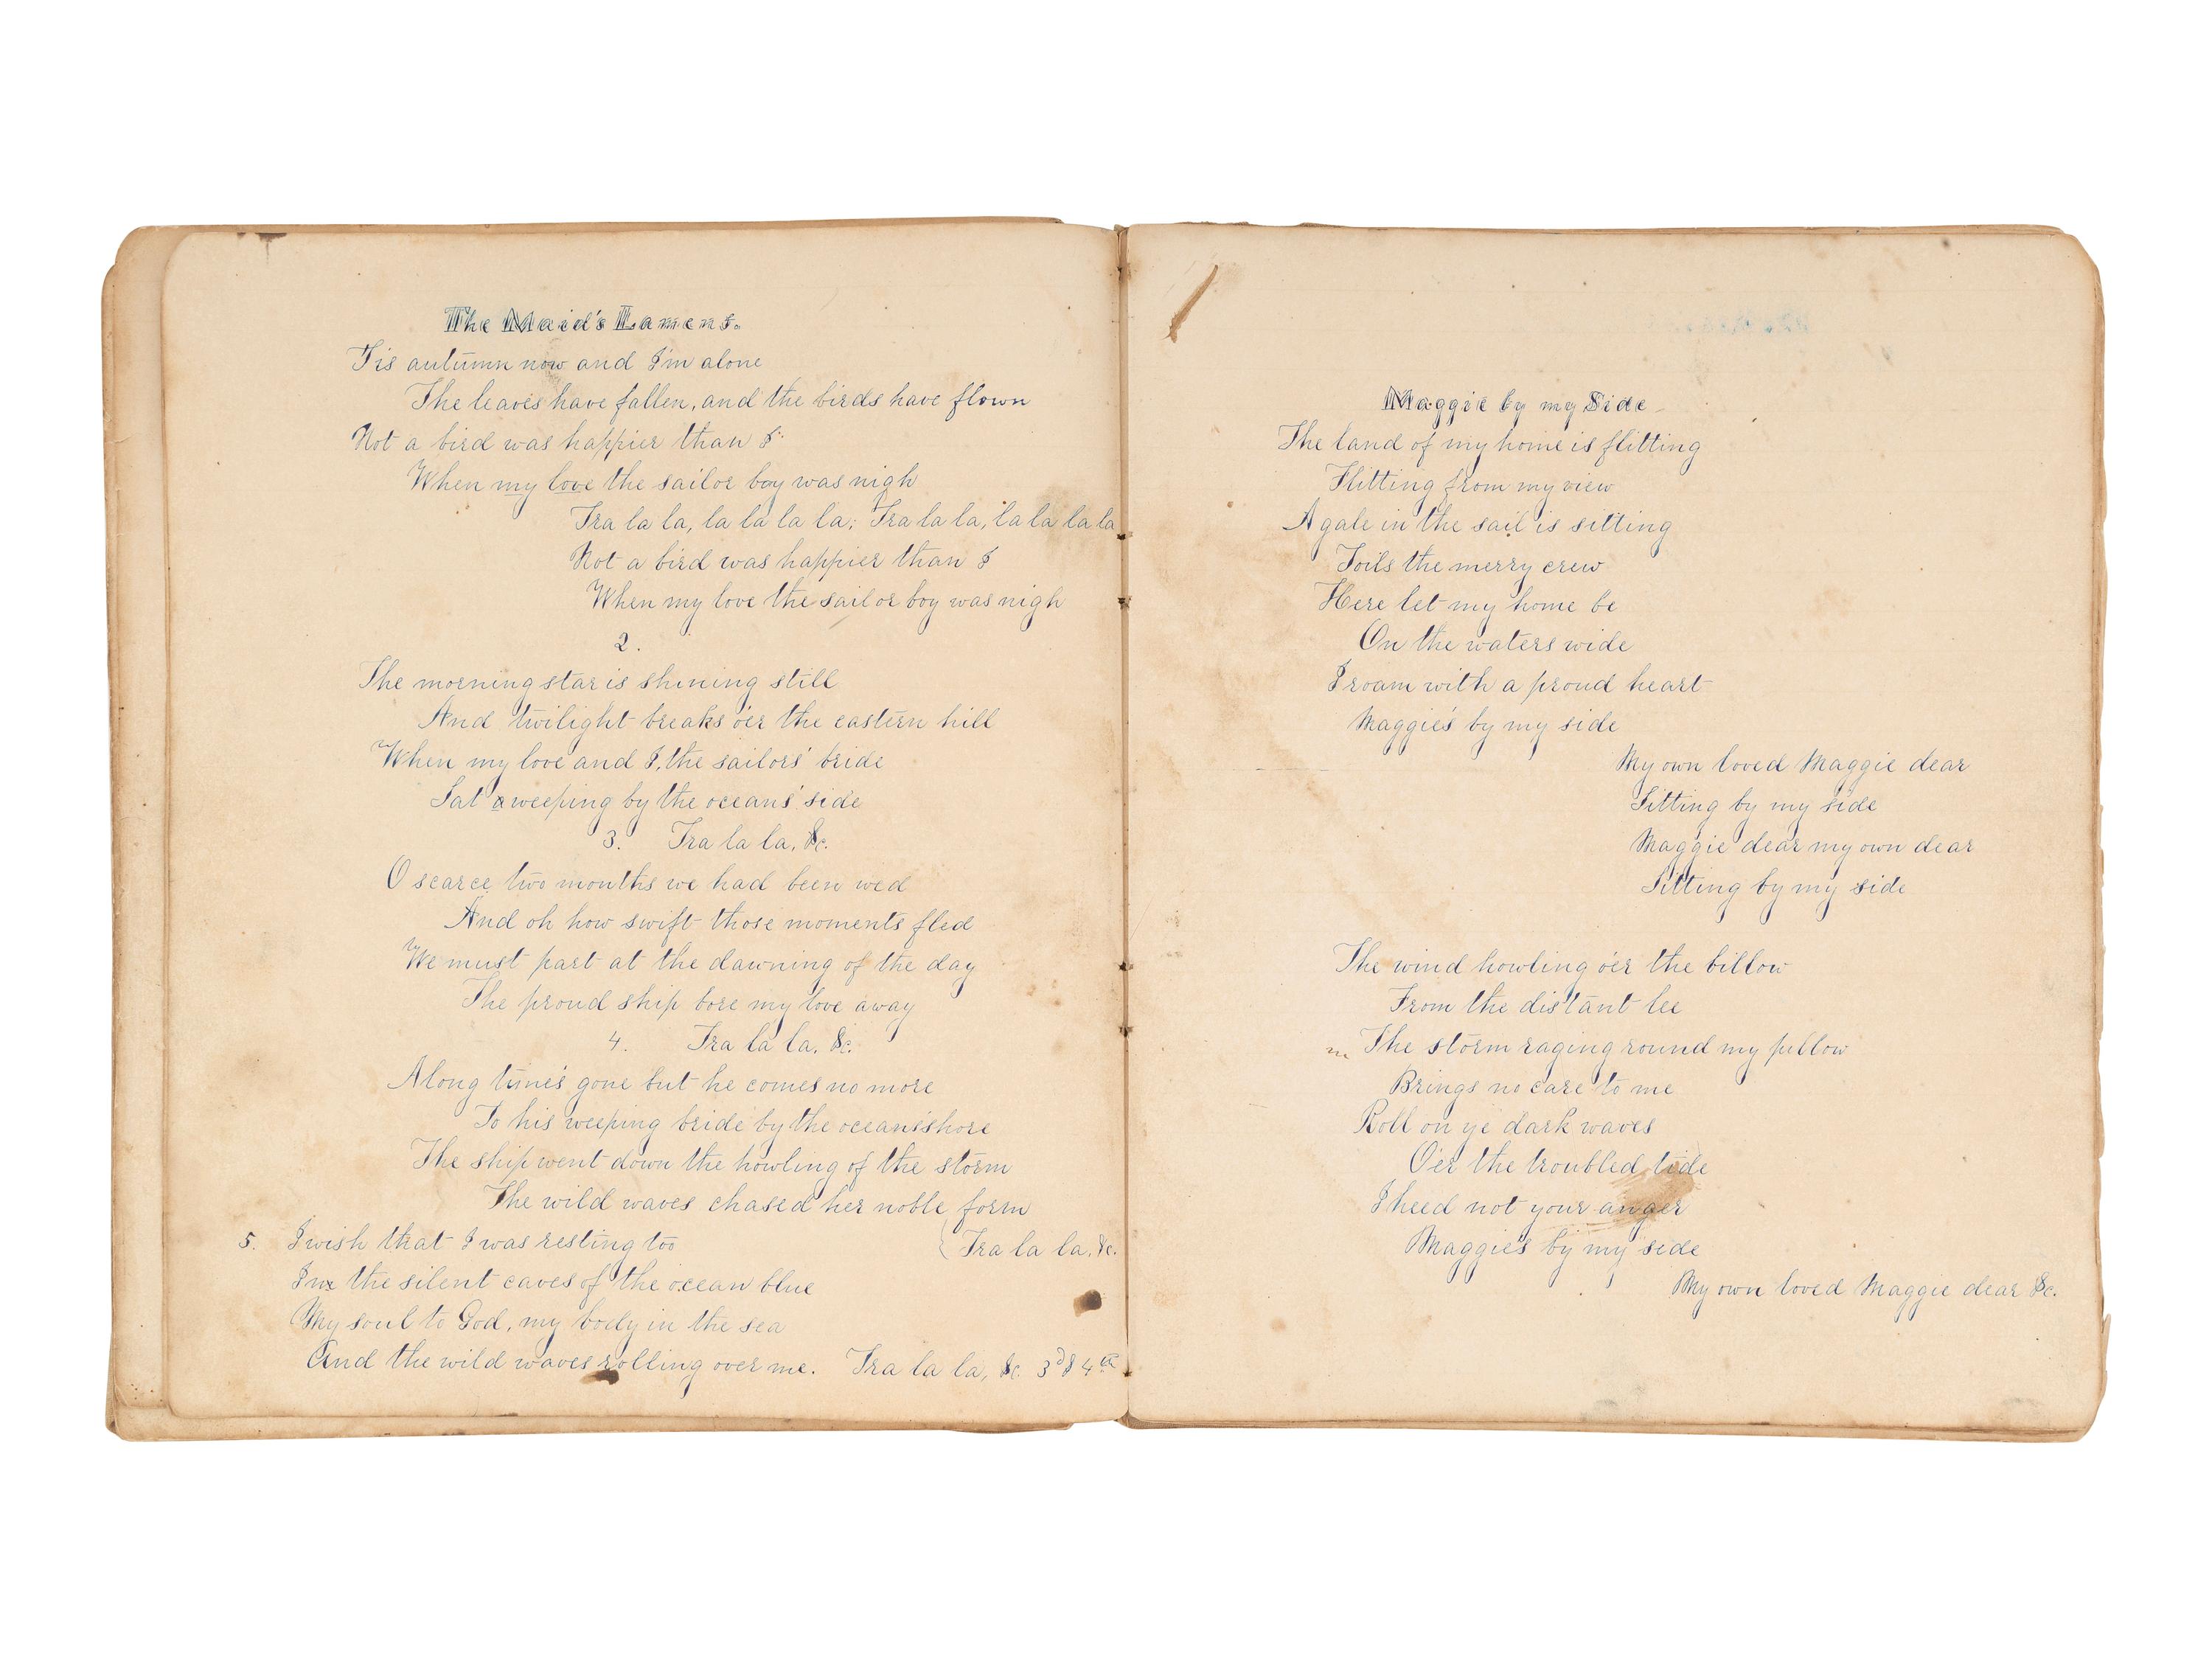 The Maid's Lament.
'Tis autumn now and I'm alone
The leaves have fallen, and the birds have flown
Not a bird was happier than I
When my love the sailor boy was nigh
Tra la la, la la la la; Tra la la, la la la la
Not a bird was happier than I
When my love the sailor boy was nigh
2.
The morning star is shining still
And twilight breaks o'er the eastern hill
When my love and I, the sailors' bride
Sat a weeping by the oceans' side
3. Tra la la, &c.
O scarce two months we had been wed
And oh how swift those moments fled
We must part at the dawning of the day
The proud ship bore my love away
4. Tra la la, &c.
A long time's gone but he comes no more
To his weeping bride by the ocean's shore
The ship went down the howling of the storm
The wild waves chased her noble form
5. I wish that I was resting too
{ Tra la la, &c.
In the silent caves of the ocean blue
My soul to God, my body in the sea
And the wild waves rolling over me. Tra la la, &c. 3d & 4th
Maggie by my Side
The land of my home is flitting
Flitting from my view
A gale in the sail is sitting
Toils the merry crew
Here let my home be
On the waters wide
I roam with a proud heart
Maggie's by my side
My own loved Maggie dear
Sitting by my side
Maggie dear my own dear
Sitting by my side
The wind howling o'er the billow
From the distant lee
The storm raging round my pillow
Brings no care to me
Roll on ye dark waves
O'er the troubled tide
I heed not your anger
Maggie's by my side
My own loved Maggie dear &c.